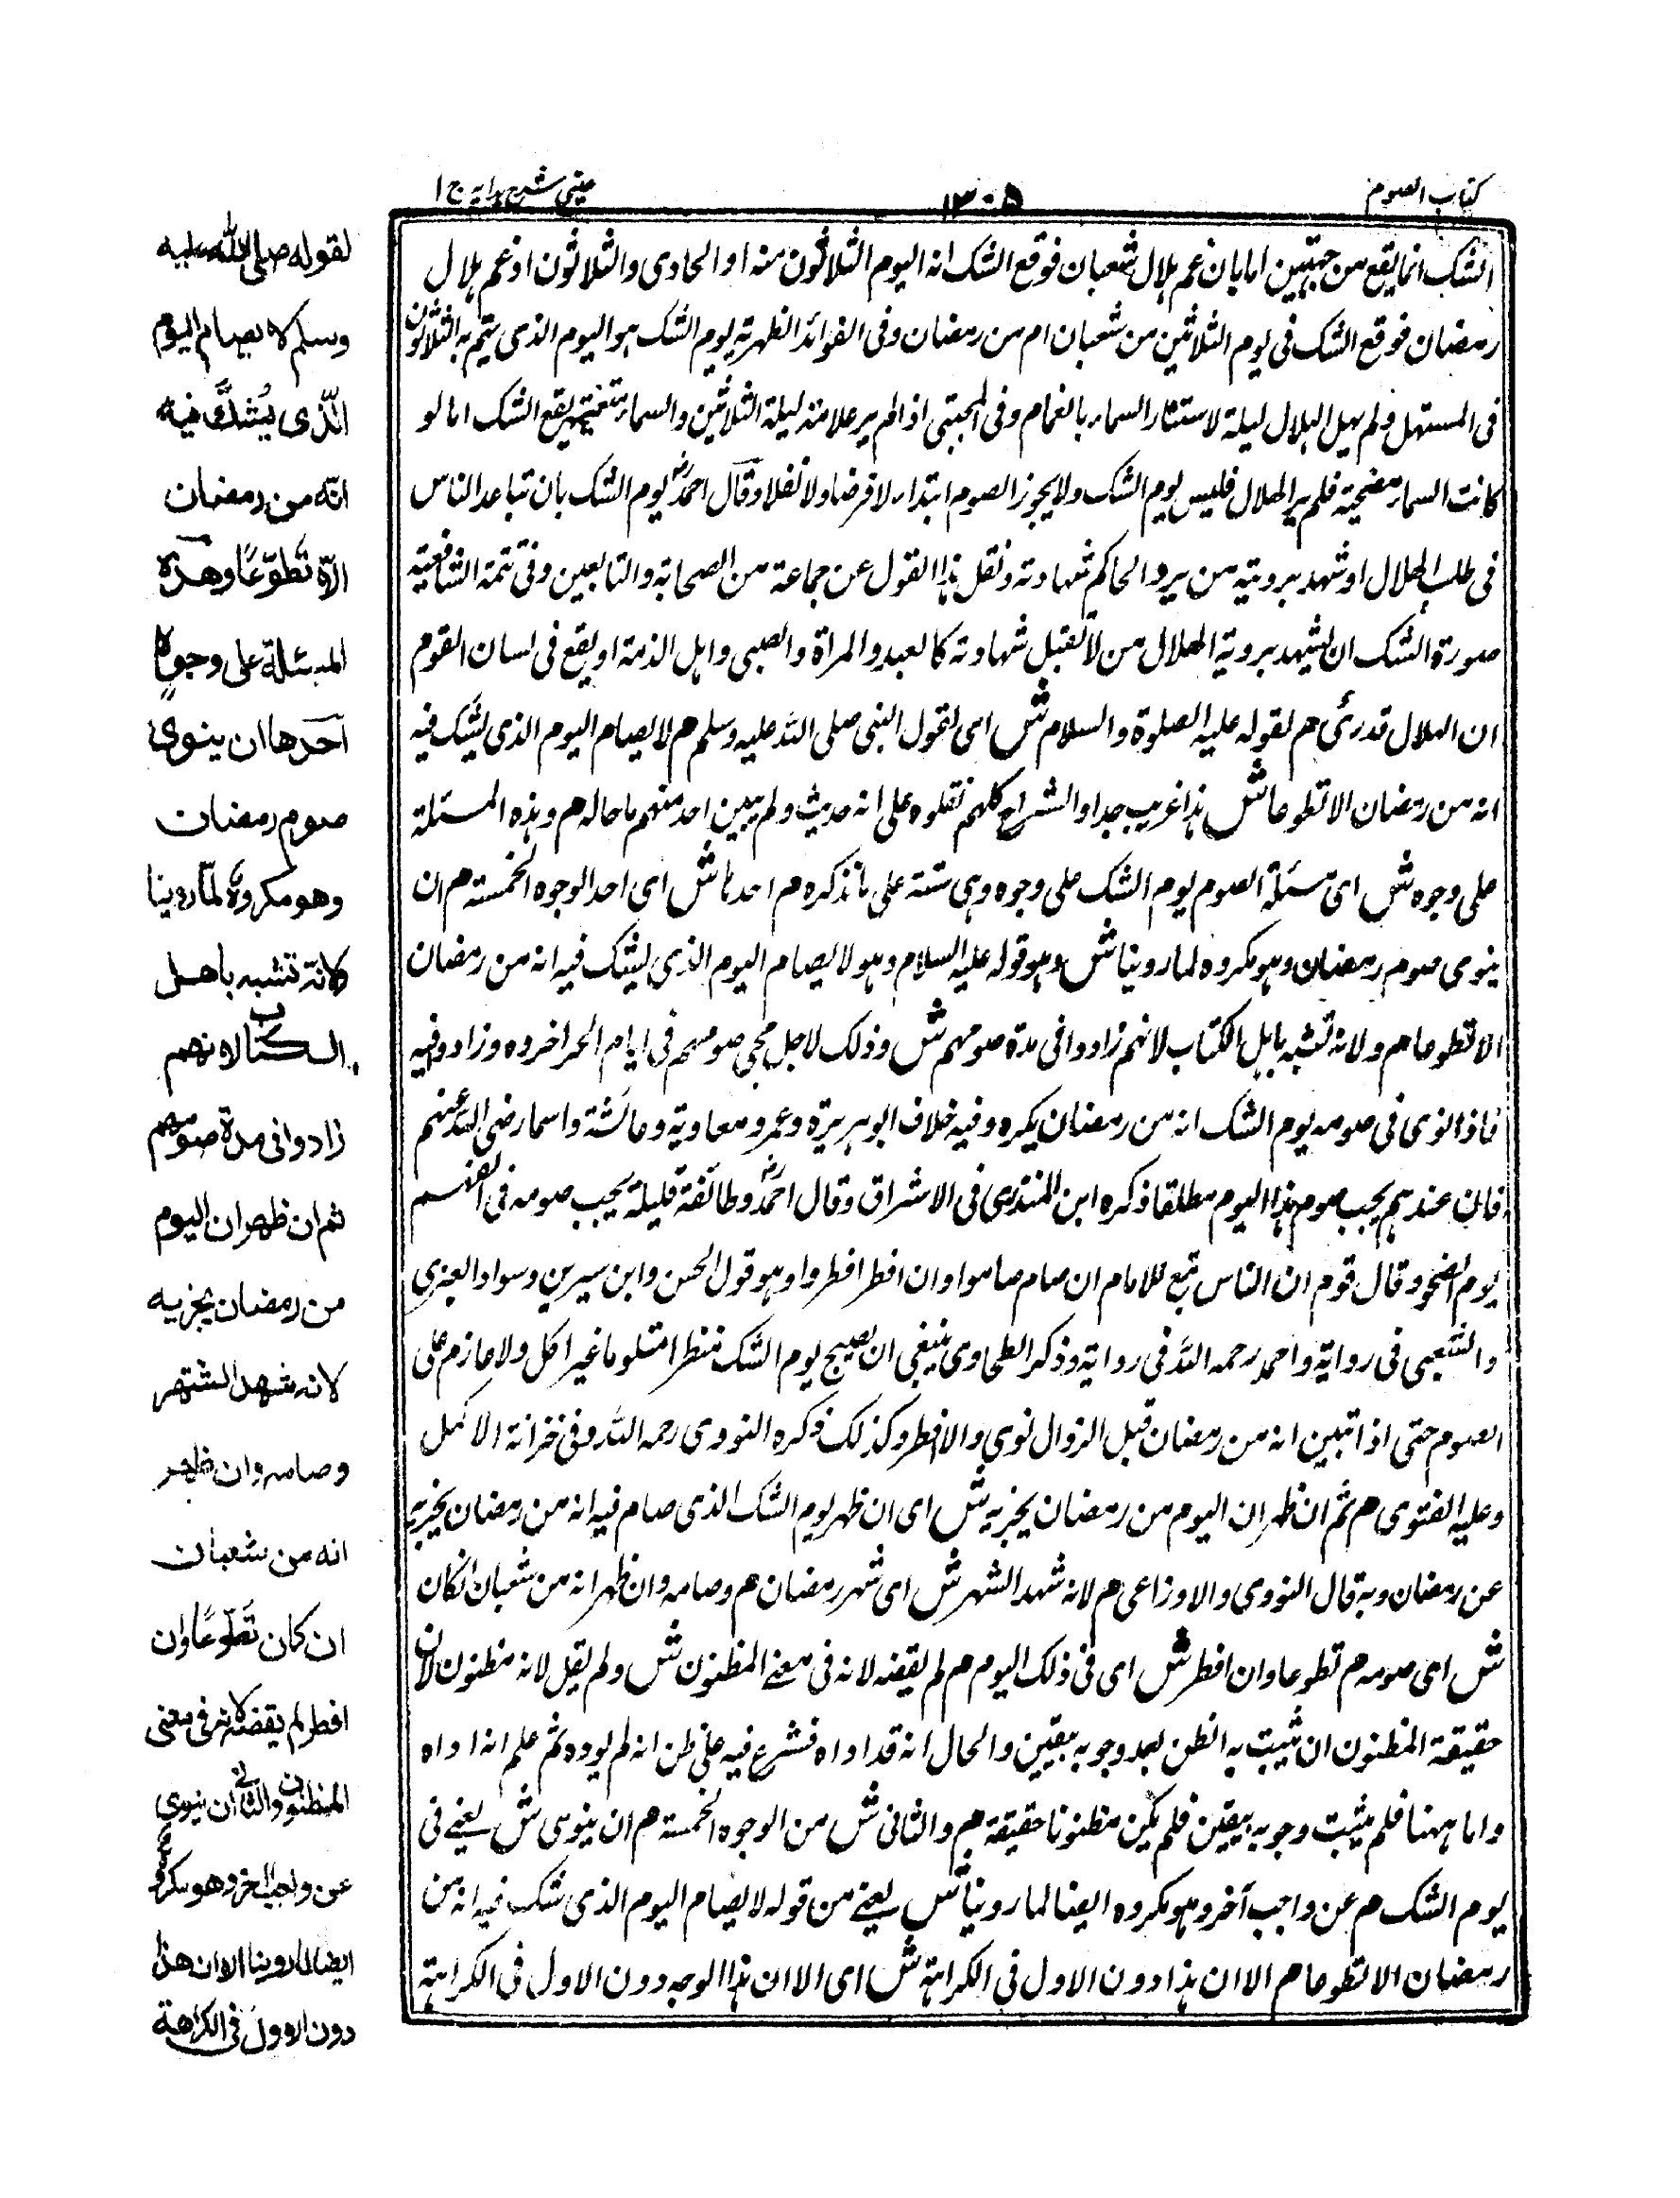 كتاب الصوم
١٣٠٥
عيني شرح هدايه ج ا
الشك انما يقع من جهتين اما بان غم هلال شعبان فوقع الشك انه اليوم الثلاثون منه او الحادى والثلاثون او غم هلال
رمضان فوقع الشك فى يوم الثلاثين من شعبان ام من رمضان وفى الفوائد الظهرية يوم الشك هو اليوم الذى يتم به الثلاثون
فى المستهل ولم يهل الهلال ليلة لاستتار السماء بالغمام وفى المجتبى اذا لم ير علامة ليلة الثلاثين والسماء متغيمة يقع الشك اما لو
كانت السماء مضحية فلم ير الهلال فليس يوم الشك ولا يجوز الصوم ابتداء لا فرضا ولا نفلا وقال احمد يوم الشك بان تباعد الناس
فى طلب الهلال او شهد برويته من يرد الحاكم شهادته ونقل هذا القول عن جماعة من الصحابة والتابعين وفى تتمة الشافعية
صورة الشك ان يشهد بروية الهلال من لا تقبل شهادته كالعبد والمراة والصبى واهل الذمة او يقع فى لسان القوم
ان الهلال قد رئى م لقوله عليه الصلوة والسلام ش اى لقول النبى صلى الله عليه وسلم م لا يصام اليوم الذى يشك فيه
انه من رمضان الا تطوعا ش هذا غريب جدا والشراح كلهم نقلوه على انه حديث ولم يبين احد منهم ما حاله م وهذه المسئلة
على وجوه ش اى مسئلة الصوم يوم الشك على وجوه وهى ستة على ما نذكره م احدها ش اى احد الوجوه الخمسة م ان
ينوى صوم رمضان وهو مكروه لما روينا ش وهو قوله عليه السلام وهو لا يصام اليوم الذى يشك فيه انه من رمضان
الا تطوعا م ولانه تشبه باهل الكتاب لانهم زادوا فى مدة صومهم ش وذلك لاجل مجى صومهم فى ايام الحر اخروه وزادوا فيه
فاذا نوى فى صومه يوم الشك انه من رمضان يكره وفيه خلاف ابو هريرة وعمر و معاوية وعائشة واسماء رضى الله عنهم
فان عندهم يجب صوم هذا اليوم مطلقا ذكره ابن المنذرى فى الاشراق وقال احمد وطائفة قليلة يجب صومه فى الغيم
يوم الضحو وقال قوم ان الناس تبع للامام ان صام صاموا وان افطر افطروا وهو قول الحسن وابن سيرين وسواد العنبرى
والشعبى فى رواية واحمد رحمه الله فى رواية وذكر الطحاوى ينبغى ان يصبح يوم الشك منتظرا متلوما غير اكل ولا عازم على
الصوم حتى اذا تبين انه من رمضان قبل الزوال نوى والا افطر وكذلك ذكره النووى رحمه الله وفى خزانة الاكمل
وعليه الفتوى م ثم ان ظهر ان اليوم من رمضان يجزيه ش اى ان ظهر يوم الشك الذى صام فيه انه من رمضان يجزيه
عن رمضان وبه قال النووى والاوزاعى م لانه شهد الشهر ش اى شهر رمضان م وصامه وان ظهر انه من شعبان انكان
ش اى صومه م تطوعا وان افطر ش اى فى ذلك اليوم م لم يقضه لانه فى معنے المظنون ش ولم يقل لانه مظنون لان
حقيقة المظنون ان ثبيت به الظن بعد وجوبه بيقين والحال انه قد اداه فشرع فيه على ظن انه لم يوده ثم علم انه اداه
واما ههنا فلم يثبت وجوبه بيقين فلم يكن مظنونا حقيقة م والثانى ش من الوجوه الخمسة م ان ينوى ش يعنے فى
يوم الشك م عن واجب آخر وهو مكروه ايضا لما روينا ش يعنے من قوله لا يصام اليوم الذى شك فيه انه من
رمضان الا تطوعا م الا ان هذا دون الاول فى الكراهة ش اى الا ان هذا الوجه دون الاول فى الكراهة
لقوله صلى الله عليه
وسلم لا يصام اليوم
الذى يُشَكُّ فيه
انّه من رمضان
الاّ تَطَوّعًا وهذه
المسئلة على وجوهٍ
احدها ان ينوى
صوم رمضان
وهو مكروهٌ لمّا روينا
لانّه تشبه باهل
الكتاب لانهم
زادوا فى مدة صومهم
ثم ان ظهر ان اليوم
من رمضان يجزيه
لانه شهد الشهر
وصامه وان ظهر
انه من شعبان
ان كان تَطَوّعًا وان
افطر لم يقضه لانه فى معنى
المظنون والثانى ان ينوى
عن واجب اخر وهو مكروه
ايضا لما روينا الا ان هذا
دون الاول فى الكراهة